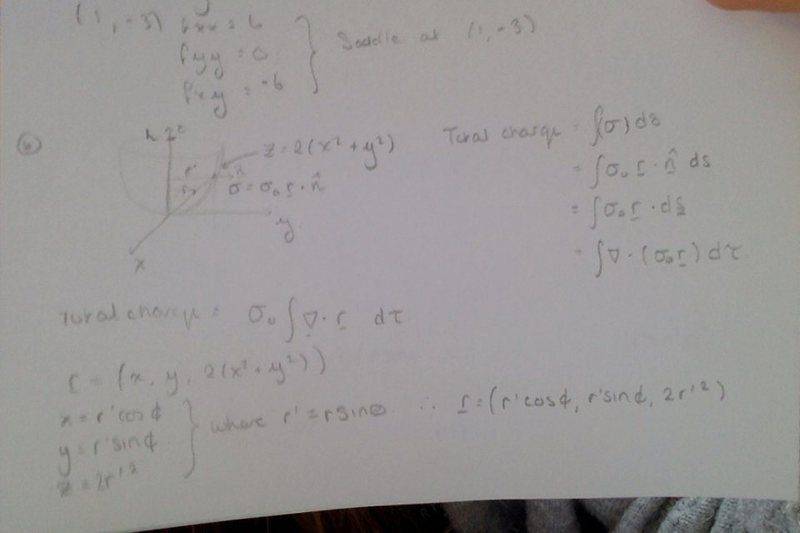 (1, -3) fxx = 6
fyy = 0
fxy = -6
Saddle at (1, -3)
6
z
z = 2(x² + y²)
σ = σ₀ r · n̂
y
x
Total charge = ∫(σ) ds
= ∫σ₀ r · n̂ ds
= ∫σ₀ r · ds
= ∫∇ · (σ₀ r) dτ
Total charge = σ₀ ∫∇ · r dτ
r = (x, y, 2(x² + y²))
x = r'cosϕ
y = r'sinϕ
z = 2r'²
where r' = rsinθ ∴ r = (r'cosϕ, r'sinϕ, 2r'²)